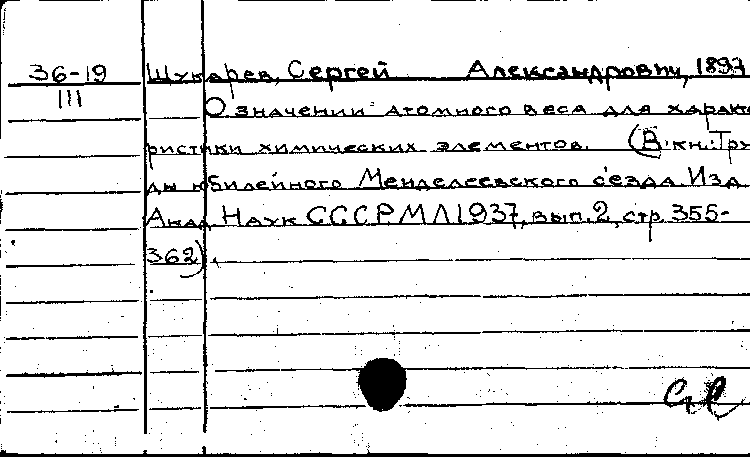 36-19 Щукарев, Сергей Александрович, 1893
III О значении атомного веса для характе
ристики химических элементов. (В кн.: Тру
ды юбилейного Менделеевского съезда. Изд
Акад. Наук СССР МЛ 1937, вып. 2, стр. 355-
362).